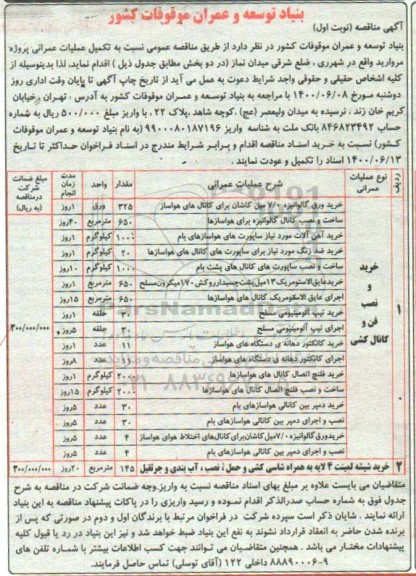 بنیاد توسعه و عمران موقوفات کشور
آگهی مناقصه (نوبت اول)
بنیاد توسعه و عمران موقوفات کشور در نظر دارد از طریق مناقصه عمومی نسبت به تکمیل عملیات عمرانی پروژه
مروارید واقع در شهرری ، ضلع شرقی میدان نماز (در دو بخش مطابق جدول ذیل ) اقدام نماید، لذا بدینوسیله از
کلیه اشخاص حقیقی و حقوقی واجد شرایط دعوت به عمل می آید از تاریخ چاپ آگهی تا پایان وقت اداری روز
دوشنبه مورخ ۱۴۰۰/۰۶/۰۸ با مراجعه به بنیاد توسعه و عمران موقوفات کشور به آدرس : تهران، خیابان
کریم خان زند . نرسیده به میدان ولیعصر (عج) ،کوچه شاهد ،پلاک ۲۲ ، با واریز مبلغ ۵۰۰/۰۰۰ ریال به شماره
حساب ۸۴۶۸۲۳۴۹۲ بانک ملت به شناسه واریز ۹۹۰۰۰۸۰۱۸۷۱۹۶ (به نام بنیاد توسعه و عمران موقوفات
کشور) نسبت به خرید اسناد مناقصه اقدام و برابر شرایط مندرج در اسناد فراخوان حداکثر تا تاریخ
۱۴۰۰/۰۶/۱۳ اسناد را تکمیل و عودت نمایند .
ردیف نوع عملیات عمرانی شرح عملیات عمرانی مقدار واحد مدت زمان انجام مبلغ ضمانت شرکت درمناقصه (به ریال)
۱ خرید و نصب فن و کانال کشی ۳۰۰/۰۰۰/۰۰۰
خرید ورق گالوانیزه ۷/۰ میل کاشان برای کانال های هواساز ۳۲۵ ورق ۱روز
ساخت و نصب کانال گالوانیزه برای هواسازها ۶۵۰ مترمربع ۴۰روز
خرید آهن آلات مورد نیاز ساپورت های هواسازهای بام ۱۰۰۰ کیلوگرم ۱روز
خرید ضد زنگ مورد نیاز برای ساپورت های کانال های هواسازها ۲۰ کیلوگرم ۱روز
ساخت و نصب ساپورت های کانال های پشت بام ۱۰۰۰ کیلوگرم ۱۰روز
خریدعایق‌الاستومریک۱۳میل‌پشت‌چسبدارروکش۱۷۰میکرون‌مسلح ۶۵۰ مترمربع ۱روز
اجرای عایق الاستومریک کانال های هواساز ۶۵۰ مترمربع ۱۵روز
خرید تیپ آلومینیومی مسلح حلقه ۱روز
اجرای تیپ آلومینیومی مسلح ۳۰ حلقه ۵روز
خرید کانکتور دهانه ی دستگاه های هواساز ۱۱ عدد ۱روز
اجرای کانکتور دهانه ی دستگاه های هواساز عدد
خرید فلنچ اتصال کانال های هواسازها ۲۰۰۰ کیلوگرم ۱روز
ساخت و نصب فلنچ اتصال کانال های هواسازها ۲۰۰۰ کیلوگرم ۱۵روز
خرید دمپر بین کانالی هواسازهای بام ۳۰ عدد ۵روز
نصب و اجرای دمپر بین کانالی هواسازهای بام ۳۰ عدد ۵روز
خریدورق گالوانیزه۰/۷میل کاشان‌برای‌کانال‌های اختلاط هوای هواساز ۴ عدد ۵روز
نصب و اجرای دمپر بین کانالی هواسازهای بام ۴ عدد ۵روز
۲ خرید شیشه لمینت ۴ لایه به همراه شاسی کشی و حمل ، نصب ، آب بندی و جرثقیل ۱۴۵ مترمربع ۲۰روز ۳۰۰/۰۰۰/۰۰۰
متقاضیان می بایست علاوه بر مبلغ بهای اسناد مناقصه نسبت به واریز وجه ضمانت شرکت در مناقصه به شرح
جدول فوق به شماره حساب صدرالذکر اقدام نموده و رسید واریزی را در پاکات پیشنهاد مناقصه به این بنیاد
ارائه نمایند . شایان ذکر است سپرده شرکت در فراخوان مرتبط با برندگان اول و دوم در صورتی که پس از
برنده شدن حاضر به انعقاد قرارداد نشوند به نفع این بنیاد ضبط خواهد شد و نیز این بنیاد در رد یا قبول کلیه
پیشنهادات مختار می باشد . همچنین متقاضیان می توانند جهت کسب اطلاعات بیشتر با شماره تلفن های
۹-۸۸۸۹۰۰۰۶ داخلی ۱۲۲ (آقای توسلی) تماس حاصل فرمایند.